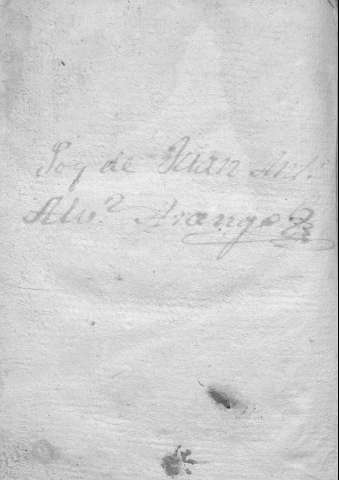 Soy de Juan Ant.º
Alv.ʳ Arango